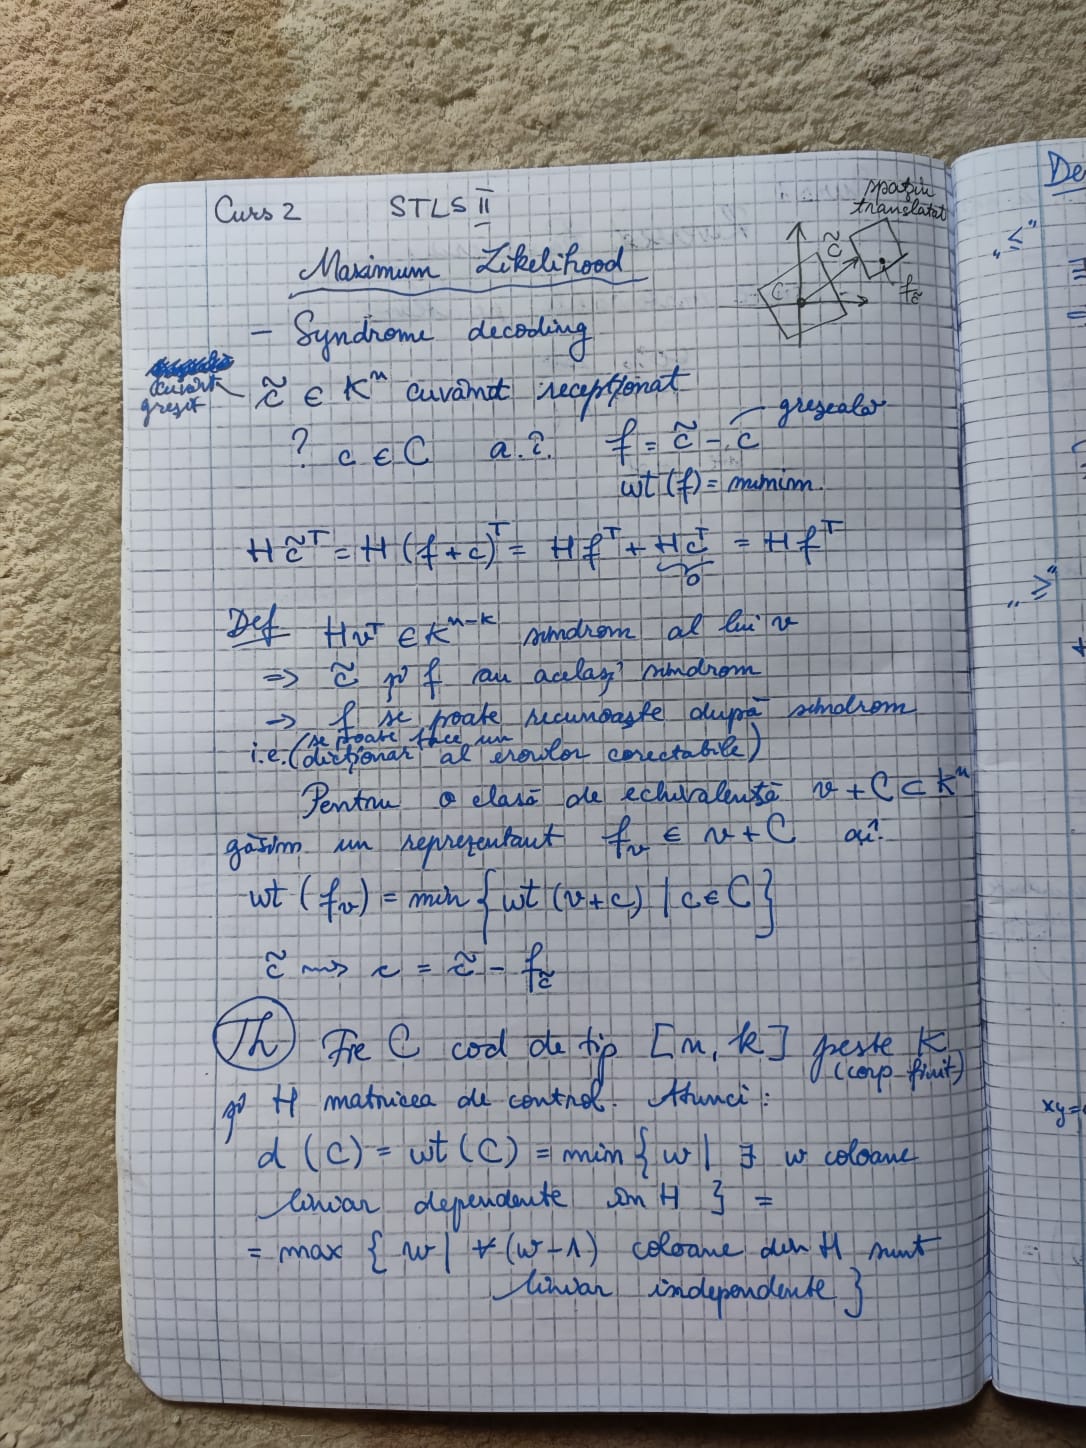 Curs 2 STLS II
spațiu
translatat
Maximum Likelihood
c̃
C
f_c̃
- Syndrome decoding
cuvânt
greșit
c̃ ∈ K^n cuvânt recepționat
greșealar
? c ∈ C a.î. f = c̃ - c
wt(f) = minim.
H c̃^T = H (f+c)^T = H f^T + H c^T = H f^T
0
Def H v^T ∈ K^{n-k} sindrom al lui v
⇒ c̃ și f au același sindrom
→ f se poate recunoaște după sindrom
(se poate face un
i.e. dicționar al erorilor corectabile)
Pentru o clasă de echivalență v + C ⊂ K^n
găsim un reprezentant f_v ∈ v + C aî.
wt (f_v) = min { wt (v+c) | c ∈ C }
c̃ ⇝ c = c̃ - f_c̃
Th Fie C cod de tip [n, k] peste K
(corp finit)
și H matricea de control. Atunci:
d (C) = wt (C) = min { w | ∃ w coloane
liniar dependente în H } =
= max { w | ∀ (w-1) coloane din H sunt
liniar independente }
De
"≤"
"≥"
xy=